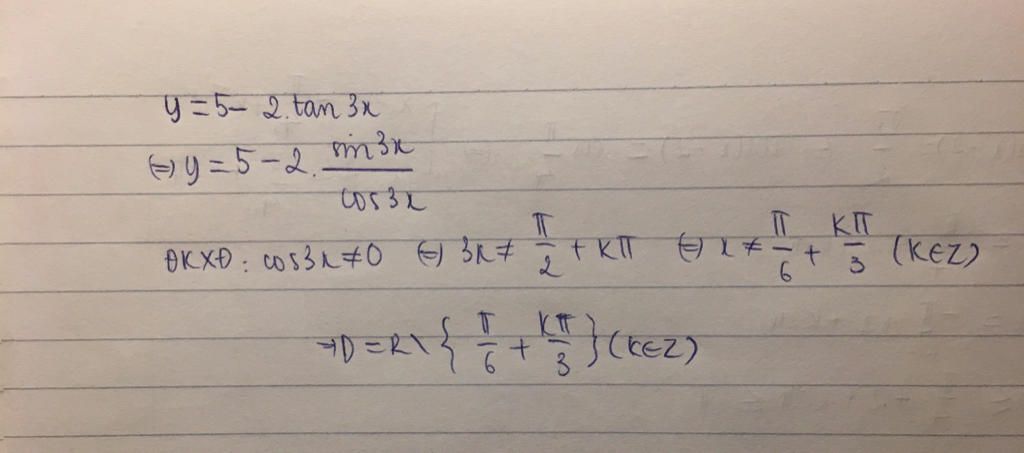 y = 5 - 2.tan 3x
⇔ y = 5 - 2. \frac{sin 3x}{cos 3x}
ĐKXĐ: cos3x ≠ 0 ⇔ 3x ≠ \frac{π}{2} + kπ ⇔ x ≠ \frac{π}{6} + \frac{kπ}{3} (k∈Z)
⇒ D = R \ { \frac{π}{6} + \frac{kπ}{3} } (k∈Z)